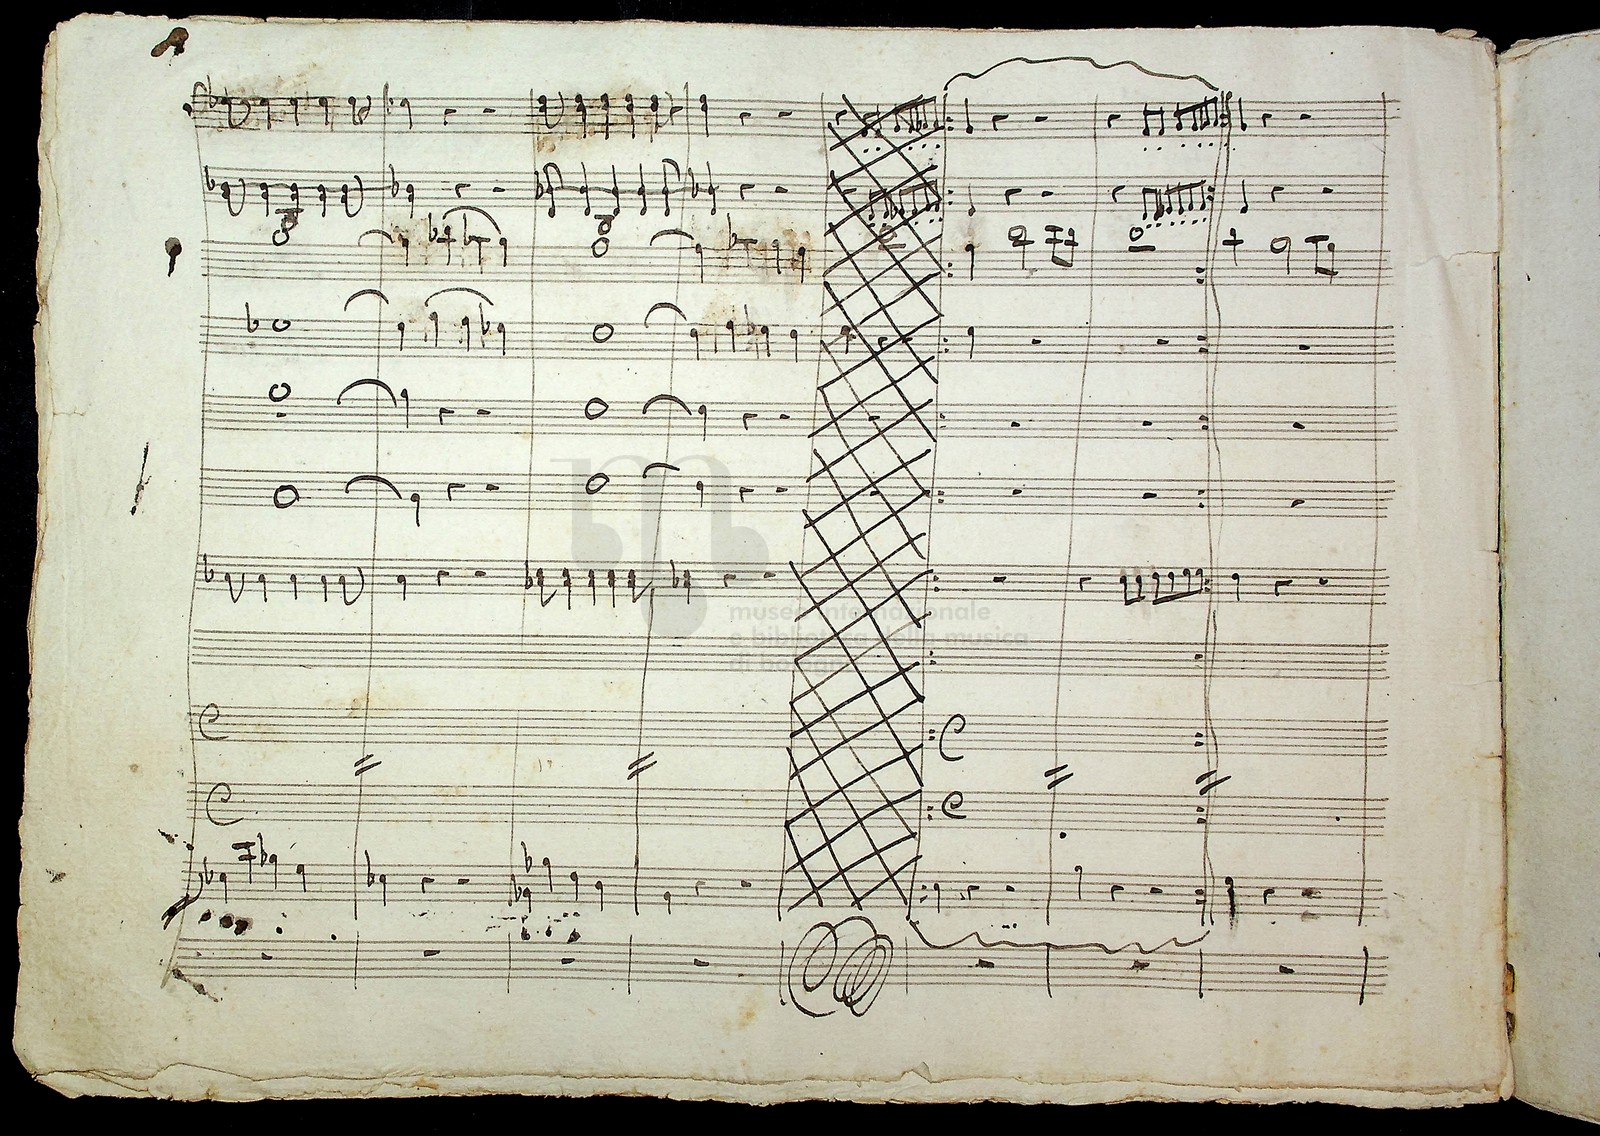 m
museo internazionale
e biblioteca della musica
di bologna